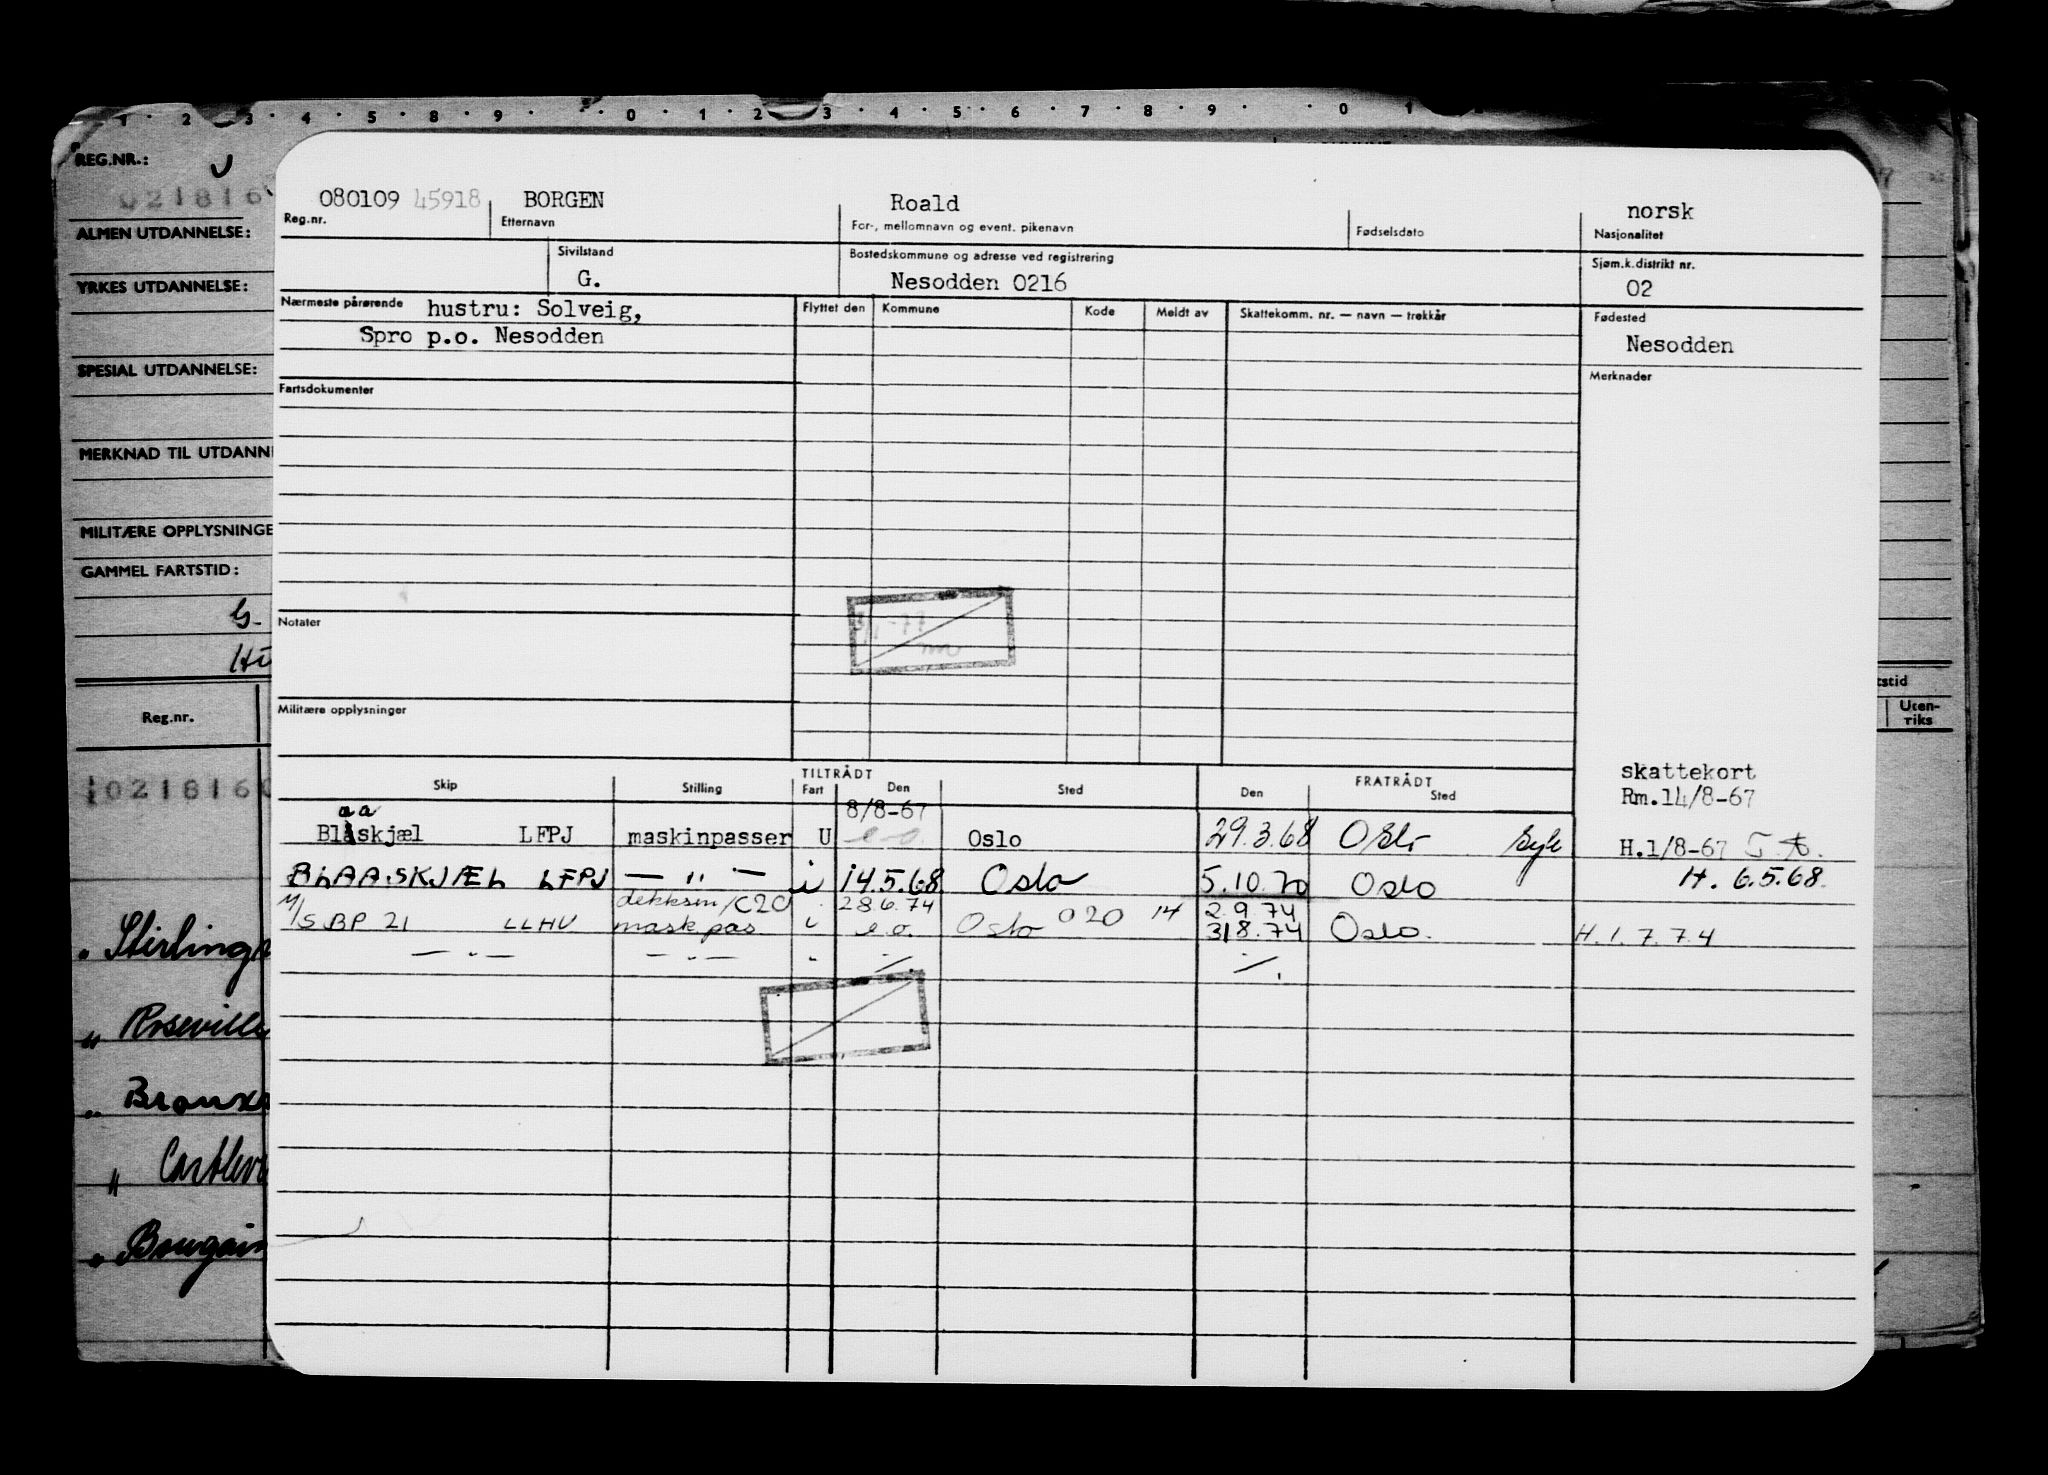 1 · 2 · 3 · 4 · 5 · 8 · 9 · · 0 · 1 · 2 · 3 · 4 · 5 · 6 · 7 · 8 · 9 · · 0 · 1
REG.NR.:
021816
ALMEN UTDANNELSE:
YRKES UTDANNELSE:
SPESIAL UTDANNELSE:
MERKNAD TIL UTDANN
MILITÆRE OPPLYSNINGE
GAMMEL FARTSTID:
Reg.nr.
021816
" Stirling
" Roseville
" Bronx
" Bougain
tstid
Uten-
riks
080109 45918 BORGEN Roald norsk
Reg.nr. Etternavn For-, mellomnavn og event. pikenavn Fødselsdato Nasjonalitet
Sivilstand Bostedskommune og adresse ved registrering Sjøm.k.distrikt nr.
G. Nesodden 0216 02
Nærmeste pårørende hustru: Solveig, Flyttet den Kommune Kode Meldt av Skattekomm. nr. — navn — trekkår Fødested
Spro p.o. Nesodden Nesodden
Fartsdokumenter Merknader
Notater
Militære opplysninger
TILTRÅDT FRATRÅDT
Skip Stilling Fart Den Sted Den Sted
skattekort
Rm.14/8-67
aa 8/8-67
Blåskjæl LFPJ maskinpasser U e.o. Oslo 29.3.68 Oslo syk H.1/8-67
BLAASKJÆL LFPJ — " — i 14.5.68 Oslo 5.10.70 Oslo H. 6.5.68.
dekksm/C20 28.6.74 020 14 2 9 74
M/S BP 21 LLHV mask.pas. i e.o. Oslo 31 8.74 Oslo. H. 1. 7. 74
— " — — " — " ./. ./.